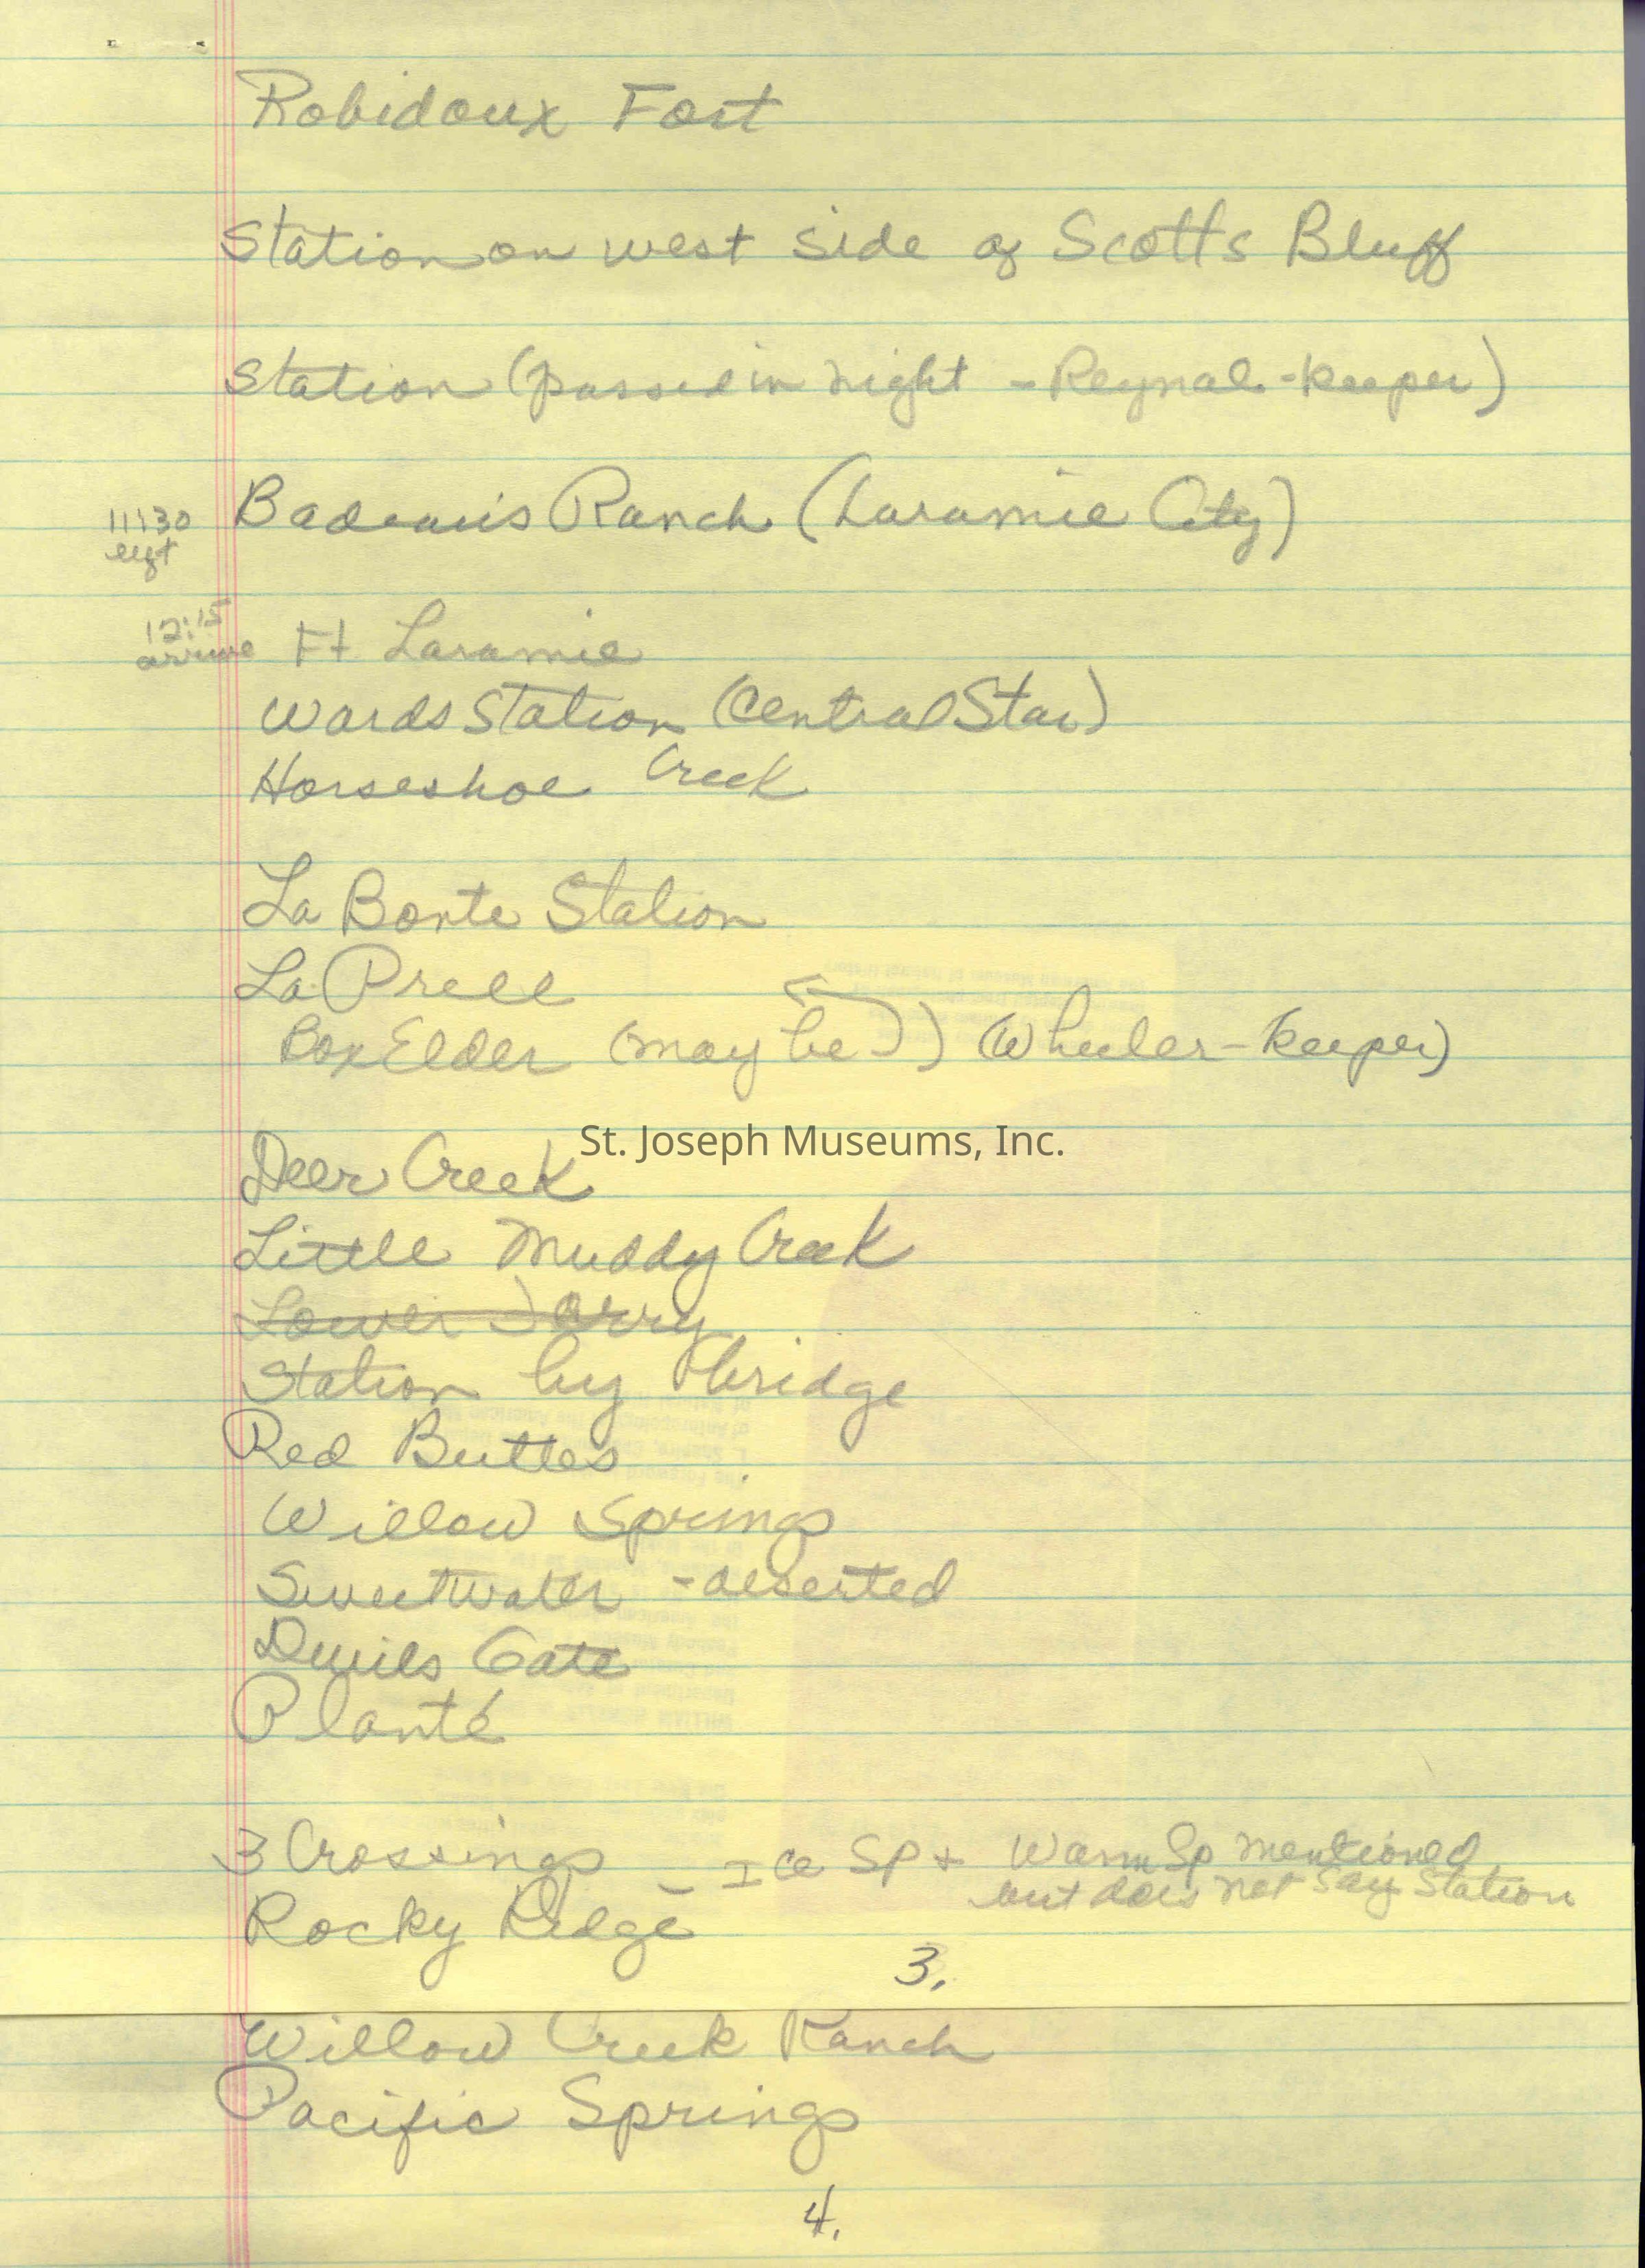 Robidoux Fort
Station on west side of Scotts Bluff
Station (passed in night - Reynal - keeper)
11:30 left Badeau's Ranch (Laramie City)
12:15 arrive Ft Laramie
Wards Station (Central Star)
Horseshoe Creek
La Bonte Station
La Prell
Box Elder (may be) (Wheeler - keeper)
St. Joseph Museums, Inc.
Deer Creek
Little Muddy Creek
Lower
Station by bridge
Red Buttes
Willow Springs
Sweetwater - deserted
Devils Gate
Planté
3 Crossings - Ice Sp + Warm Sp mentioned
but does not say Station
Rocky Ridge
3.
Willow Creek Ranch
Pacific Springs
4.